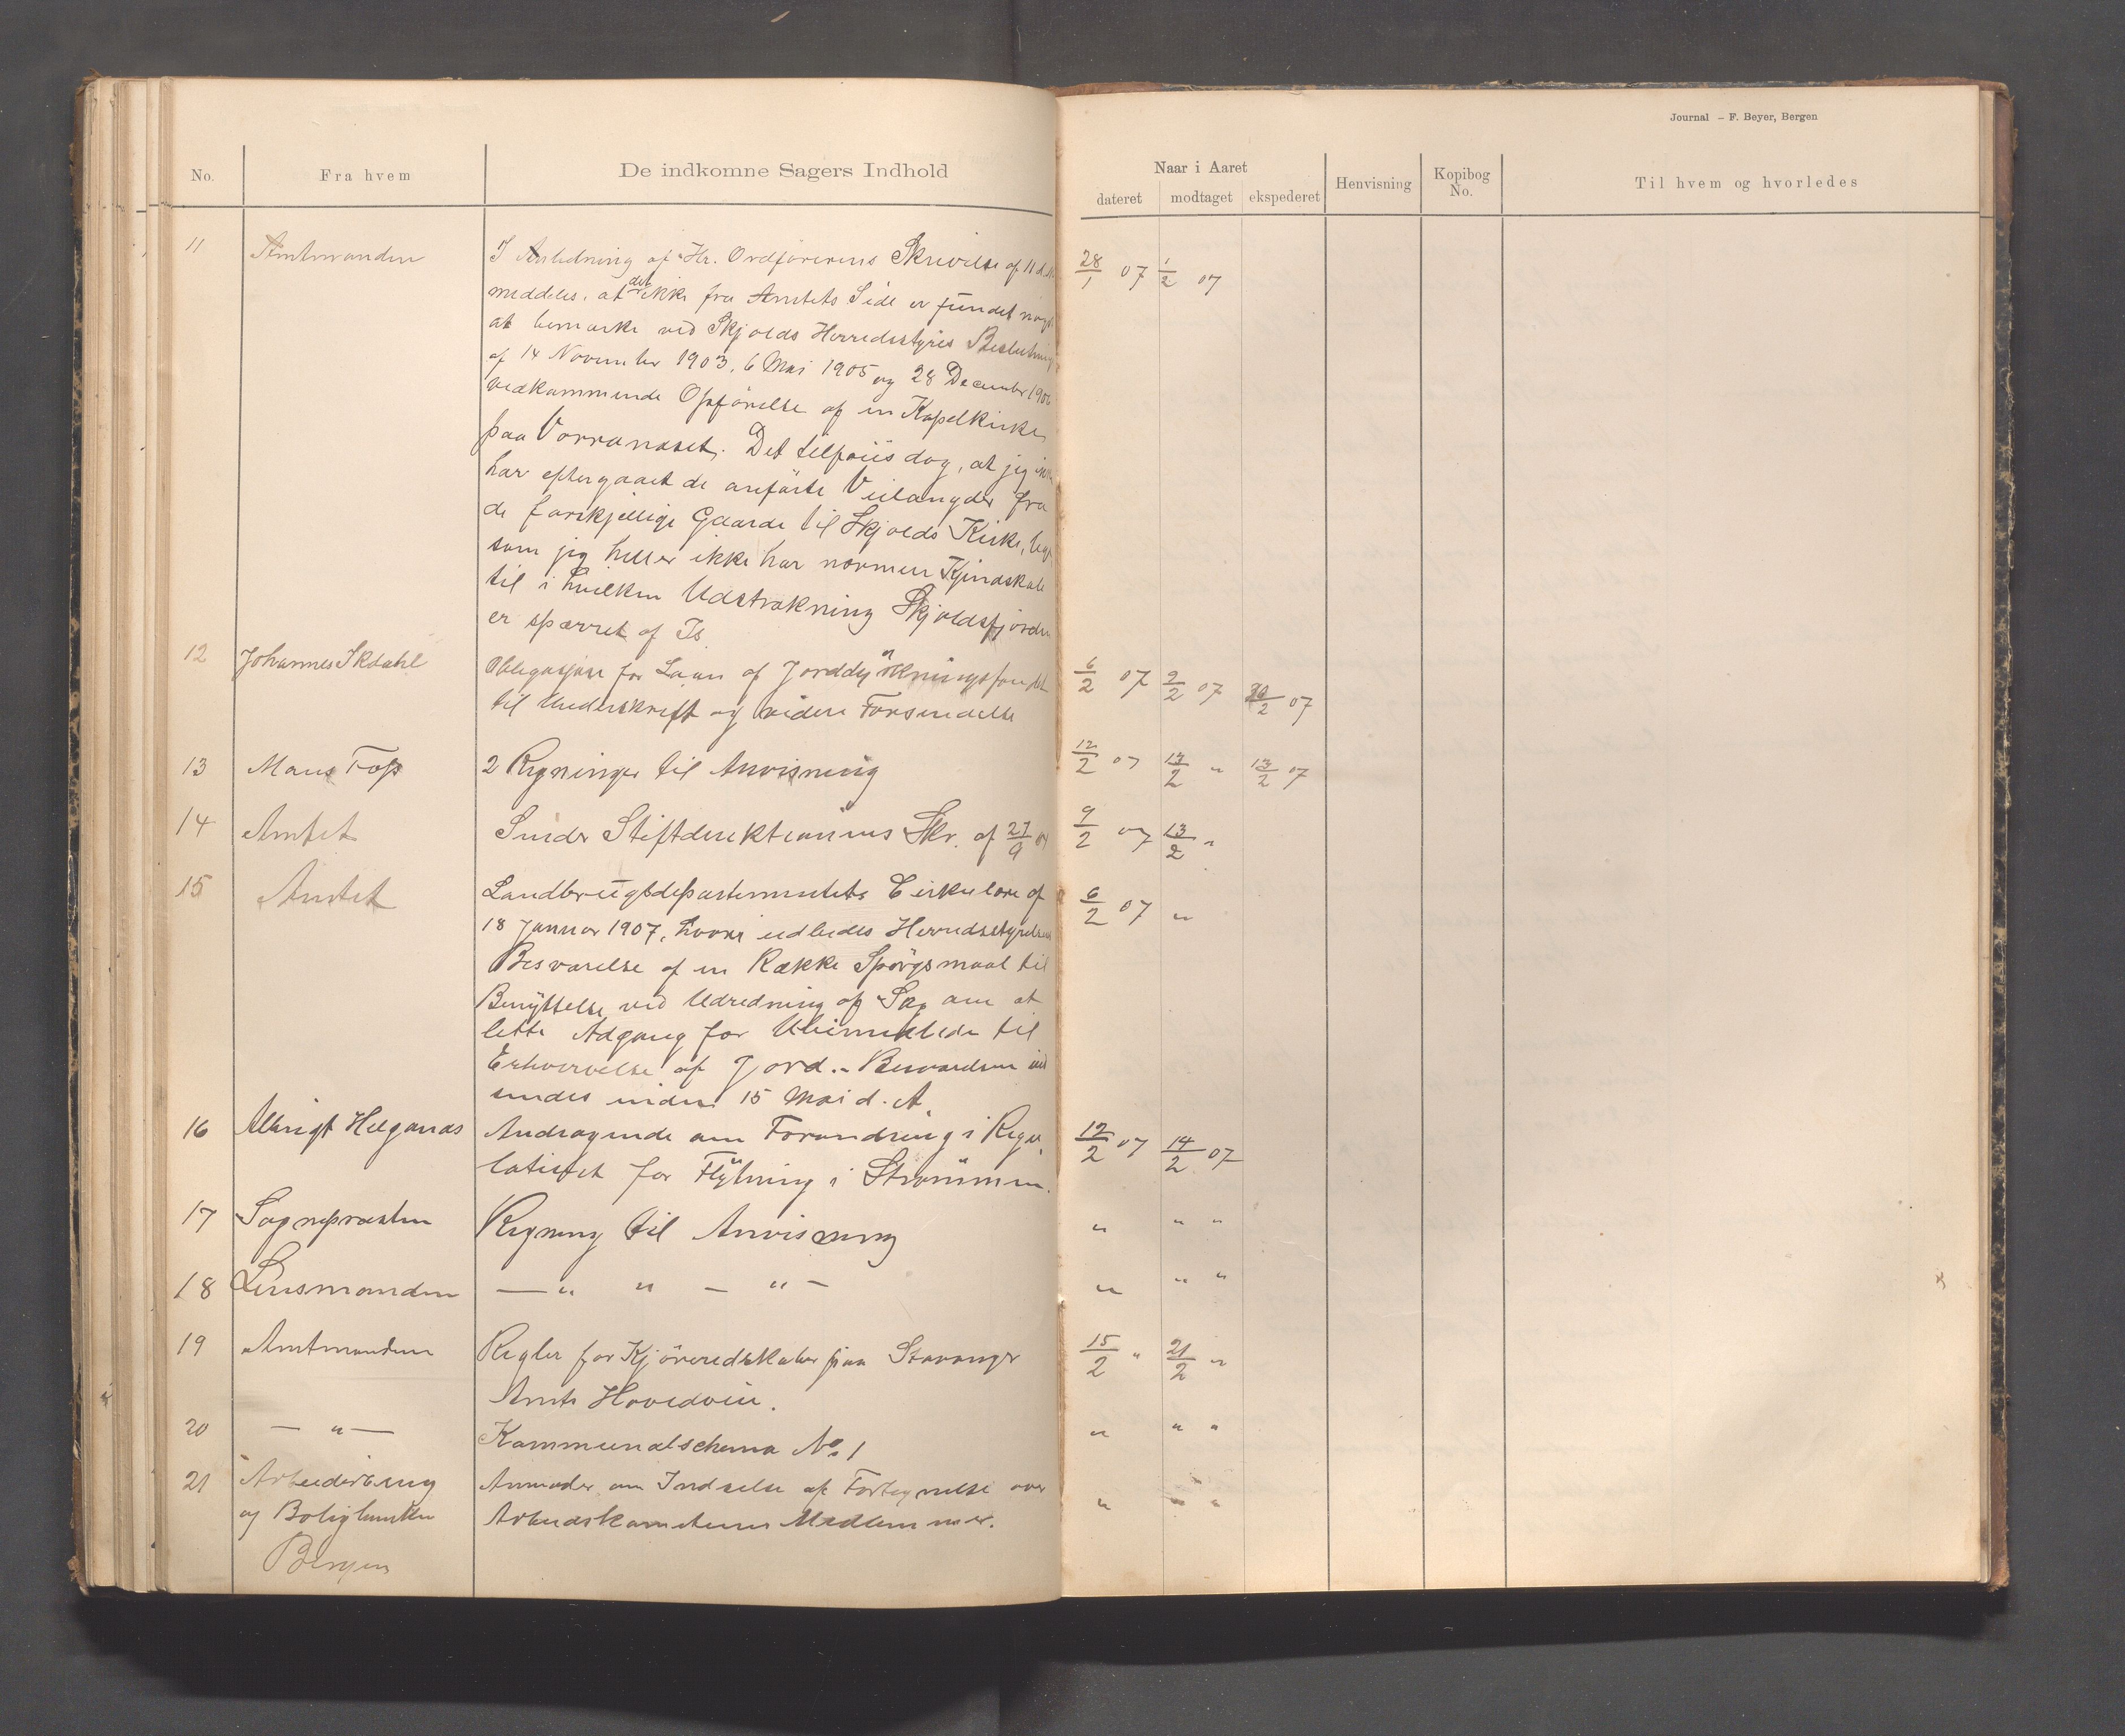 Journal – F. Beyer, Bergen
No. Fra hvem De indkomne Sagers Indhold Naar i Aaret dateret modtaget ekspederet Henvisning Kopibog No. Til hvem og hvorledes
11 Amtmanden I Anledning af Hr. Ordførerens Skrivelse af 11 d. 28/1 07 1/2 07
meddeles, at det ikke fra Amtets Side er fundet noget
at bemærke ved Skjolds Herredsstyres Beslutning
af 14 November 1903, 6 Mai 1905 og 28 December 1906
vedkommende Opførelse af en Kapelkirke
paa Vorranæset. Det tilføiis dog, at jeg ikke
har eftergaaet de anførte Veilængder fra
de forskjellige Gaarde til Skjolds Kirke,
som jeg heller ikke har nærmere Kjendskab
til i hvilken Udstrækning Skjoldsfjorden
er spærret af Is
12 Johannes Skdahl Obligasjon for Laan af Jorddyrkningsfondet 6/2 07 9/2 07 /2 07
til Underskrift og videre Forsendelse
13 Mans Foss 2 Regninger til Anvisning 12/2 07 13/2 " 13/2 07
14 Amtet Sender Stiftdirektionens Skr. af 27/9 9/2 07 13/2 "
15 Amtet Landbrugsdepartementets Cirkulære af 6/2 07 "
18 Januar 1907, hvori udbedes Herredsstyrelsens
Besvarelse af en Række Spørgsmaal til
Benyttelse ved Udredning af Sag om at
lette Adgang for Ubemidlede til
Erhvervelse af Jord. - Besvarelsen ind
sendes inden 15 Mai d. A.
16 Albrigt Helganæs Andragende om Forandring i Regu 12/2 07 14/2 07
lativet for Fløtning i Strømmen.
17 Sognepræsten Regning til Anvisning " " "
18 Lensmanden — " " — " — " " "
19 Amtmanden Regler for Kjøreredskaber paa Stavanger 15/2 " 21/2 "
Amts Hovedveie.
20 — " — Kommunalschema No 1 " " "
21 Arbeiderbrug Anmoder om Indselse af Fortegnelse over " " "
og Boligbanken Arbeidskomiteens Medlemmer.
Bergen